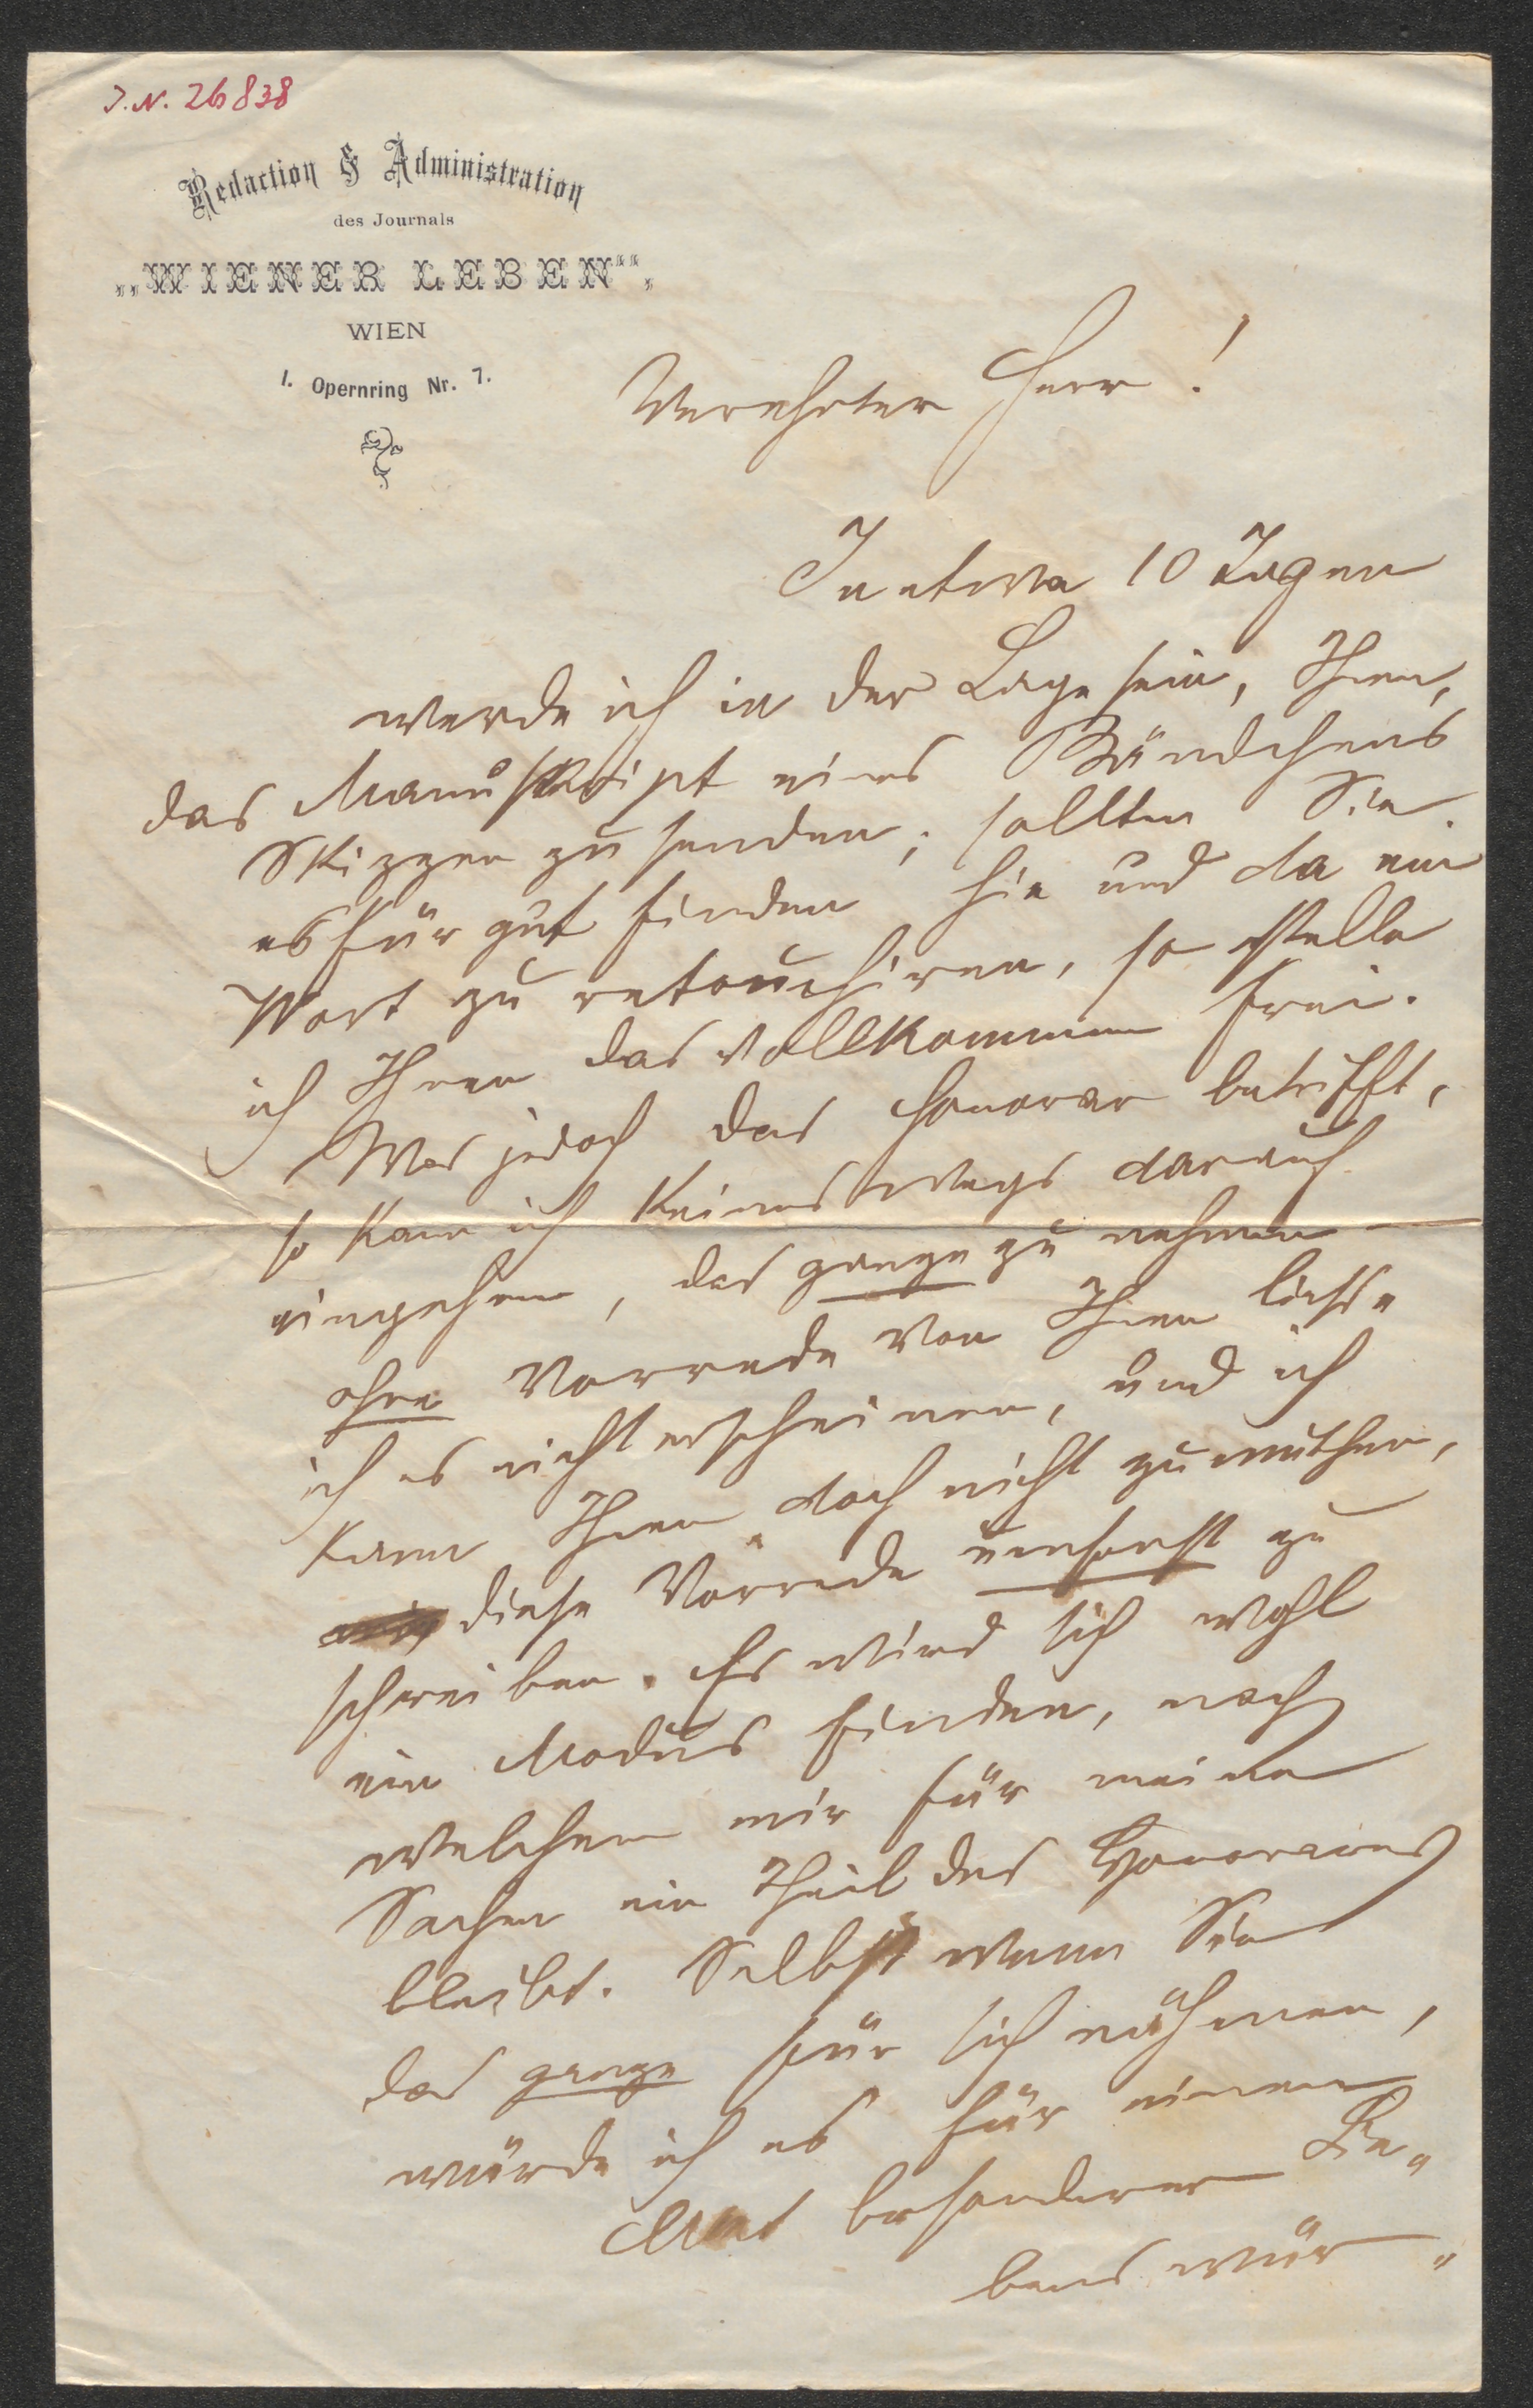 J.N. 26838
Redaction & Administration
des Journals
„WIENER LEBEN“,
WIEN
I. Opernring Nr. 7.
Verehrter Herr!
In etwa 10 Tagen
werde ich in der Lage sein, Ihnen,
das Manuskript eines Bändchens
Skizzen zu senden; sollten Sie
es für gut finden hie und da ein
Wort zu retouchiren, so stelle
ich Ihnen das vollkommen frei.
Was jedoch das Honorar betrifft,
so kann ich keineswegs darauf
eingehen, das ganze zu nehmen —
ohne Vorrede von Ihnen liesse
ich es nicht erscheinen, und ich
kann Ihnen doch nicht zumuthen,
diese Vorrede umsonst zu
schreiben. Es wird sich wohl
ein Modus finden, nach
welchem mir für meine
Sachen ein Theil des Honorares
bleibt. Selbst wenn Sie
das ganze für sich nähmen,
würde ich es für einen
Akt besonderer Lie„
bens wür„